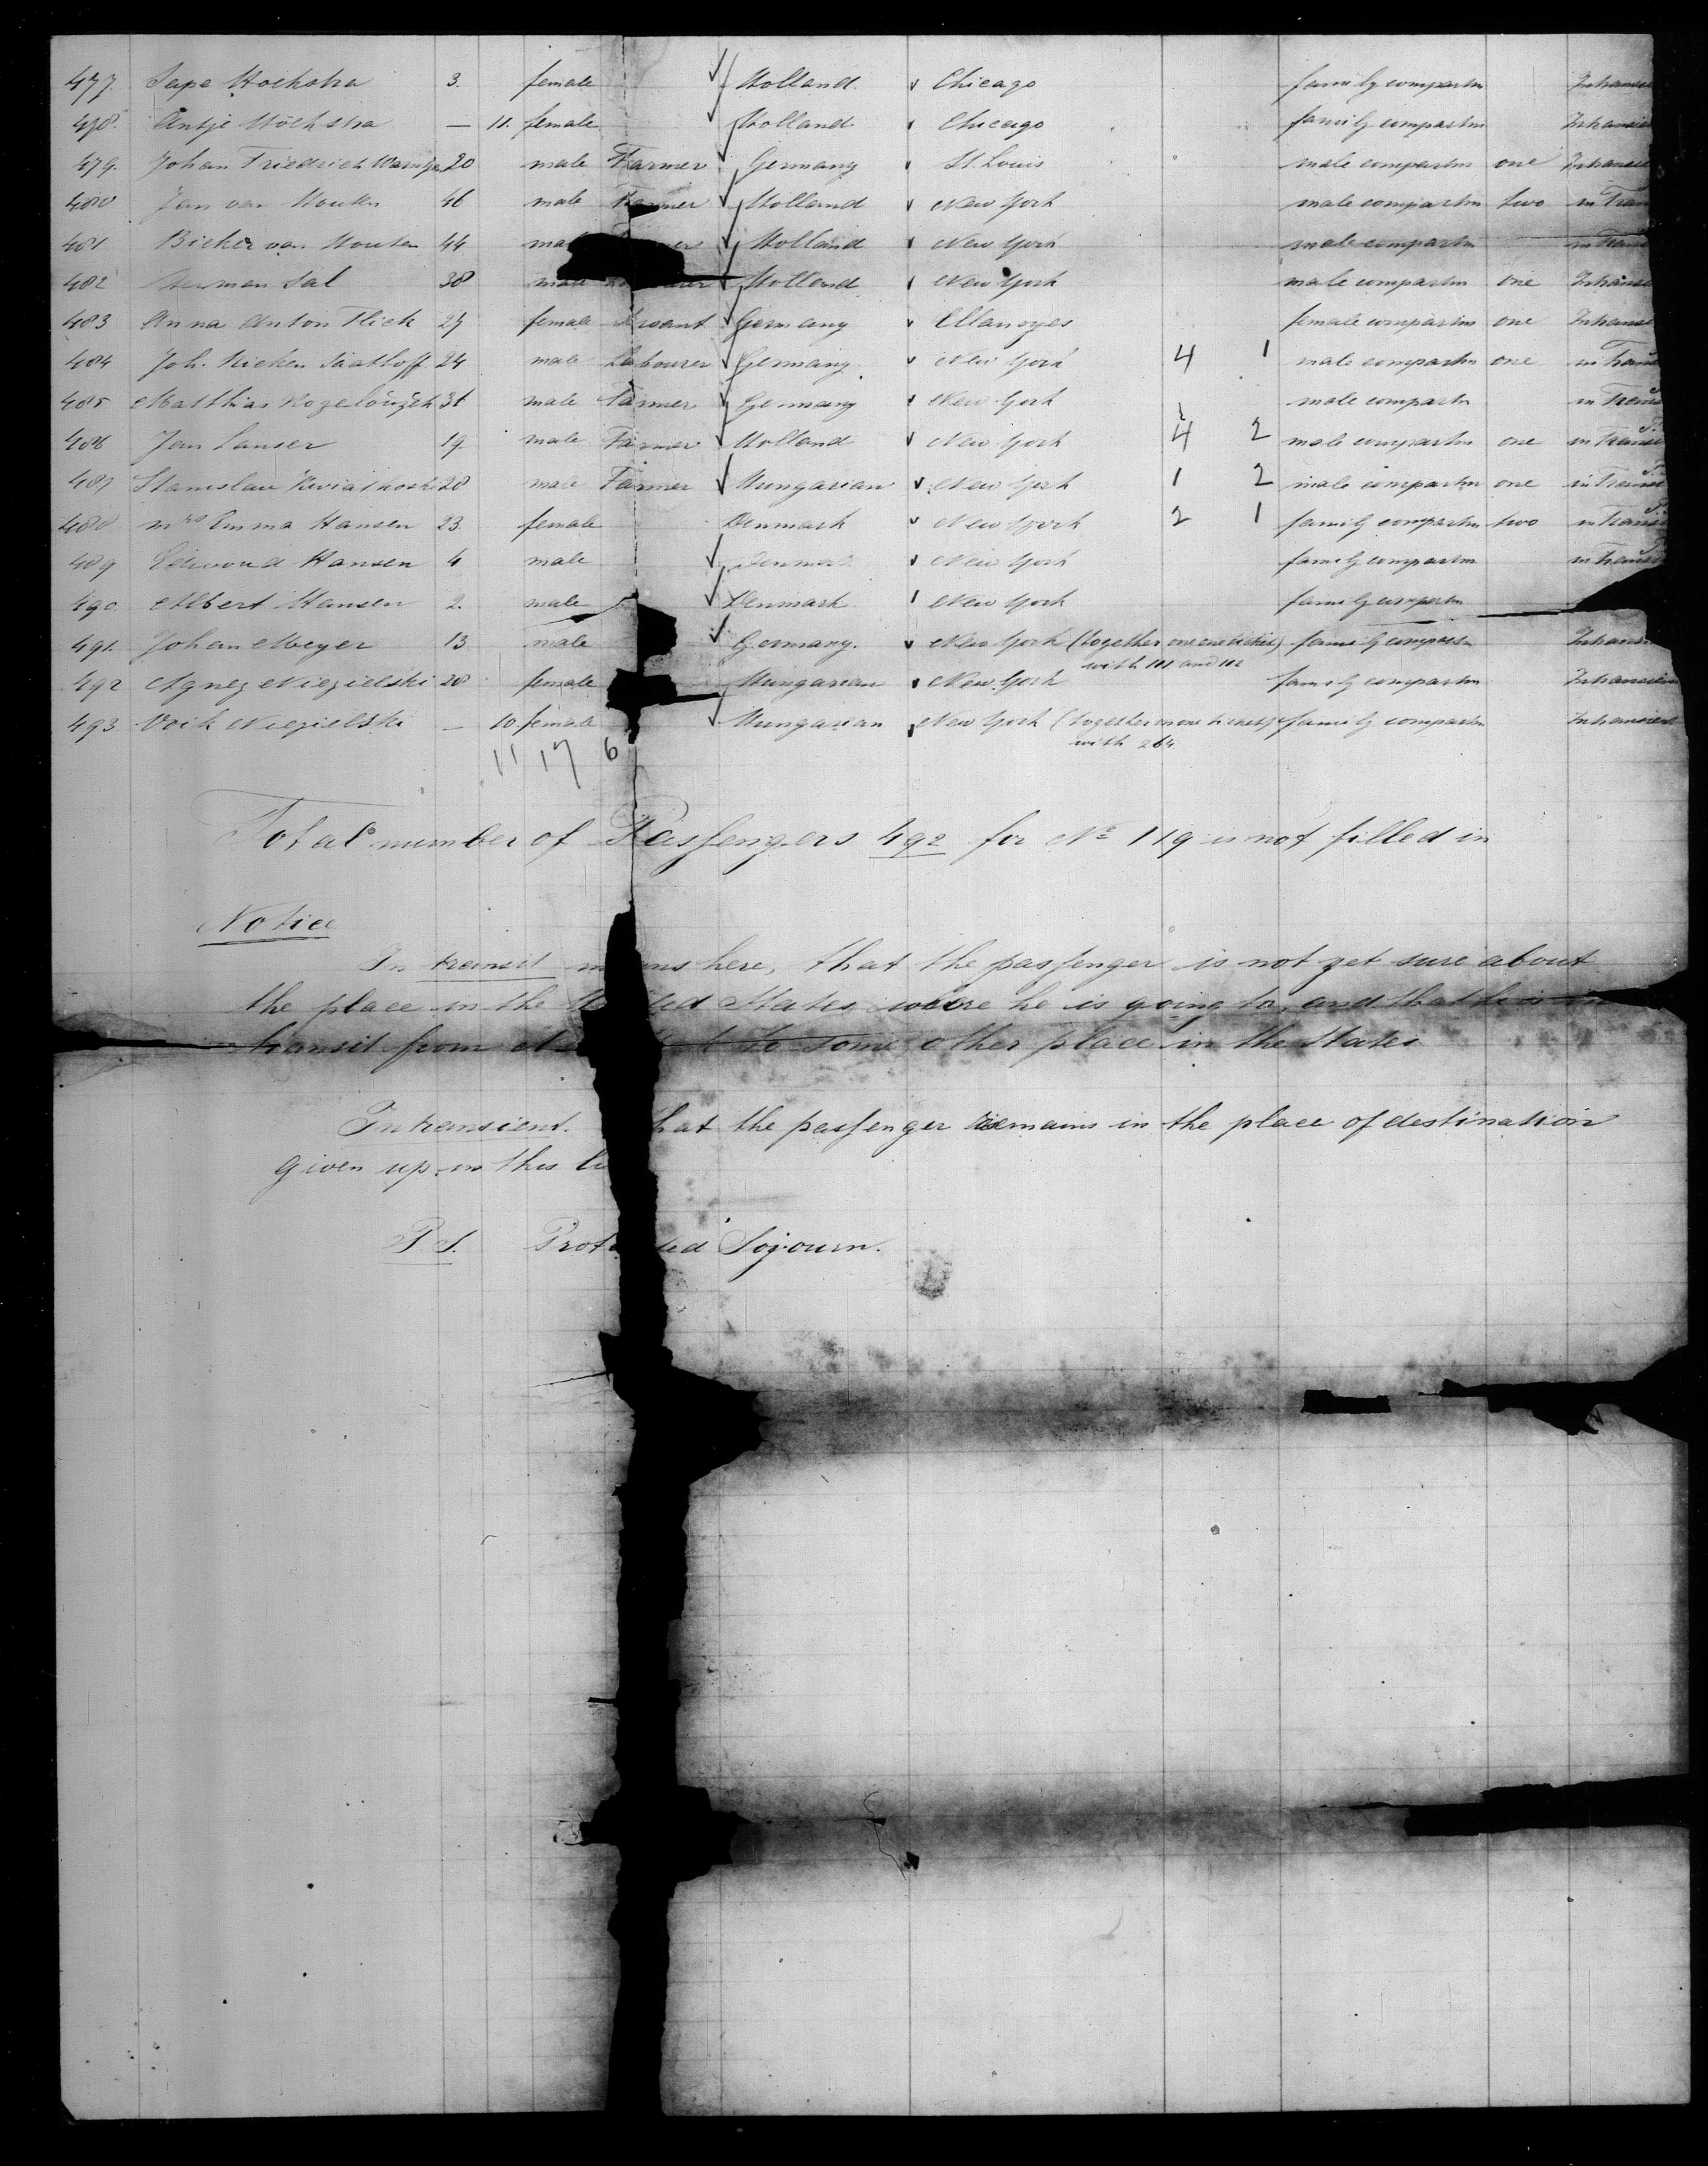 477. Sape Hoekstra 3. female Holland. Chicago family compartm
478. Antje Hoekstra — 11. female Holland Chicago family compartm
479. Johan Friedrich 20 male Farmer Germany St. Louis male compartm one
480 Jan van Houten 46 male Farmer Holland New York male compartm two in
481 van Houten 44 Holland New York male compartm in
482 Herman Sal 38 male Holland New York male compartm one
483 Anna Anton Flick 27 female Germany Ellanoyes female compartm one
484 Joh. Saathoff 24 male Labourer Germany New York 4 1 male compartm one in
485 Matthias 31 male Farmer Germany New York male compartm in
486 Jan Lanser 19. male Farmer Holland New York 4 2 male compartm one in
487 Stanislaw 28 male Farmer Hungarian New York 1 2 male compartm one in
488 Mrs Emma Hansen 23. female Denmark New York 2 1 family compartm two in
489 Hansen 4 male Denmark New York family compartm in
490 Albert Hansen 2. male Denmark New York family compartm
491. Johan Meyer 13 male Germany. New York (together one one ticket) family compartm
with 101 and 102
492 Agnez Niezielski 28 female Hungarian New York family compartm
493 Niezielski — 10. female Hungarian New York (together on one ticket) family compartm Intransient
with 264.
11 17 6
Total number of Passengers 492 for No 119 is not filled in
Notice
In transit here, that the passenger is not yet sure about
the place in the States where he is going to, and that he is in
transit from to some other place in the States
Intransient. that the passenger remains in the place of destination
given up in this
P.S. Sojourn.